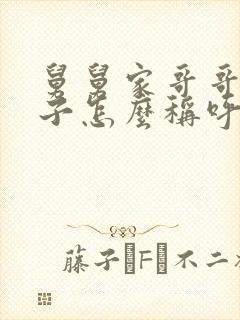 舅舅家哥哥
子怎麼稱呼
藤子F不二